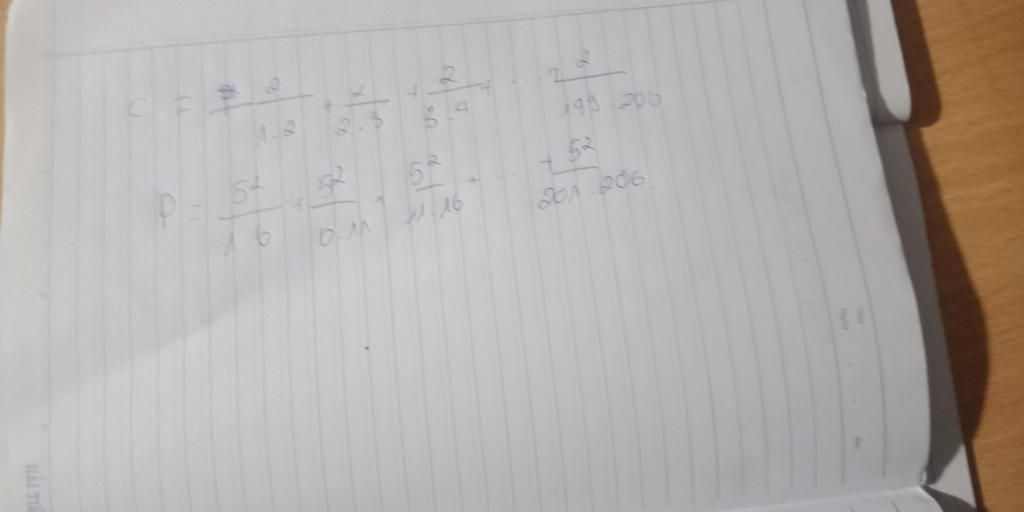 C = 2/1.2 + 2/2.3 + 2/3.4 + ... + 2/199.200
P = 5²/1.6 + 5²/6.11 + 5²/11.16 + ... + 5²/201.206